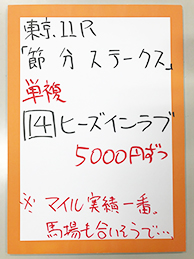 東京11R
「節分ステークス」
単複
14 ヒーズインラブ
5000円ずつ
※マイル実績一番。
馬場も合いそうで…